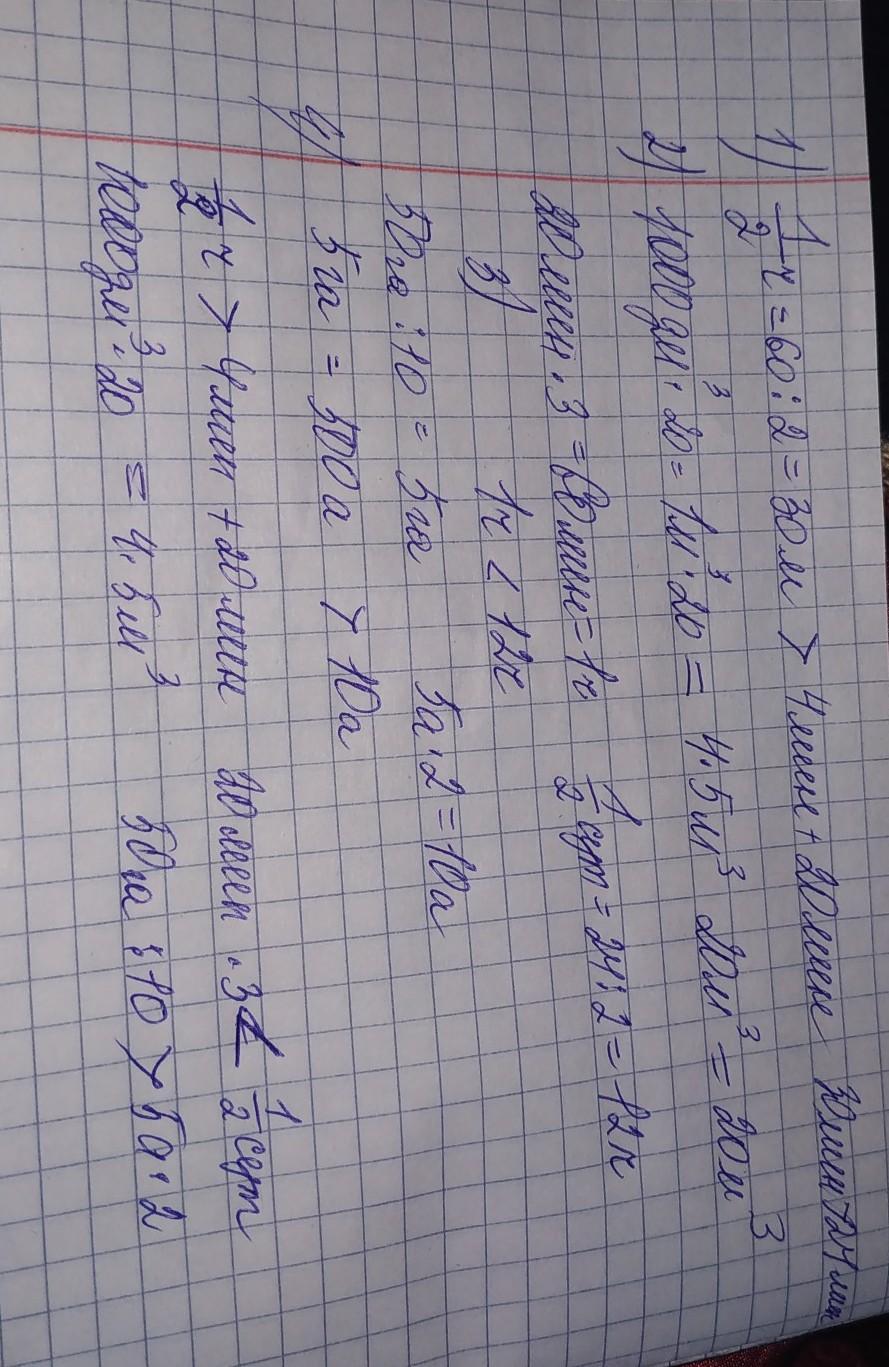 1) 1/2 ч = 60 : 2 = 30 м > 4 мин + 20 мин 30 мин > 24 мин
2) 1000 дм³ · 20 = 1 м³ · 20 = 4 · 5 м³ 20 м³ = 20 м³
20 мин · 3 = 60 мин = 1 ч 1/2 сут = 24 : 2 = 12 ч
3) 1 ч < 12 ч
50 га : 10 = 5 га 5 а · 2 = 10 а
4) 5 га = 500 а > 10 а
1/2 ч > 4 мин + 20 мин 20 мин · 3 < 1/2 сут
1000 дм³ · 20 = 4 · 5 м³ 50 га : 10 > 5 а · 2